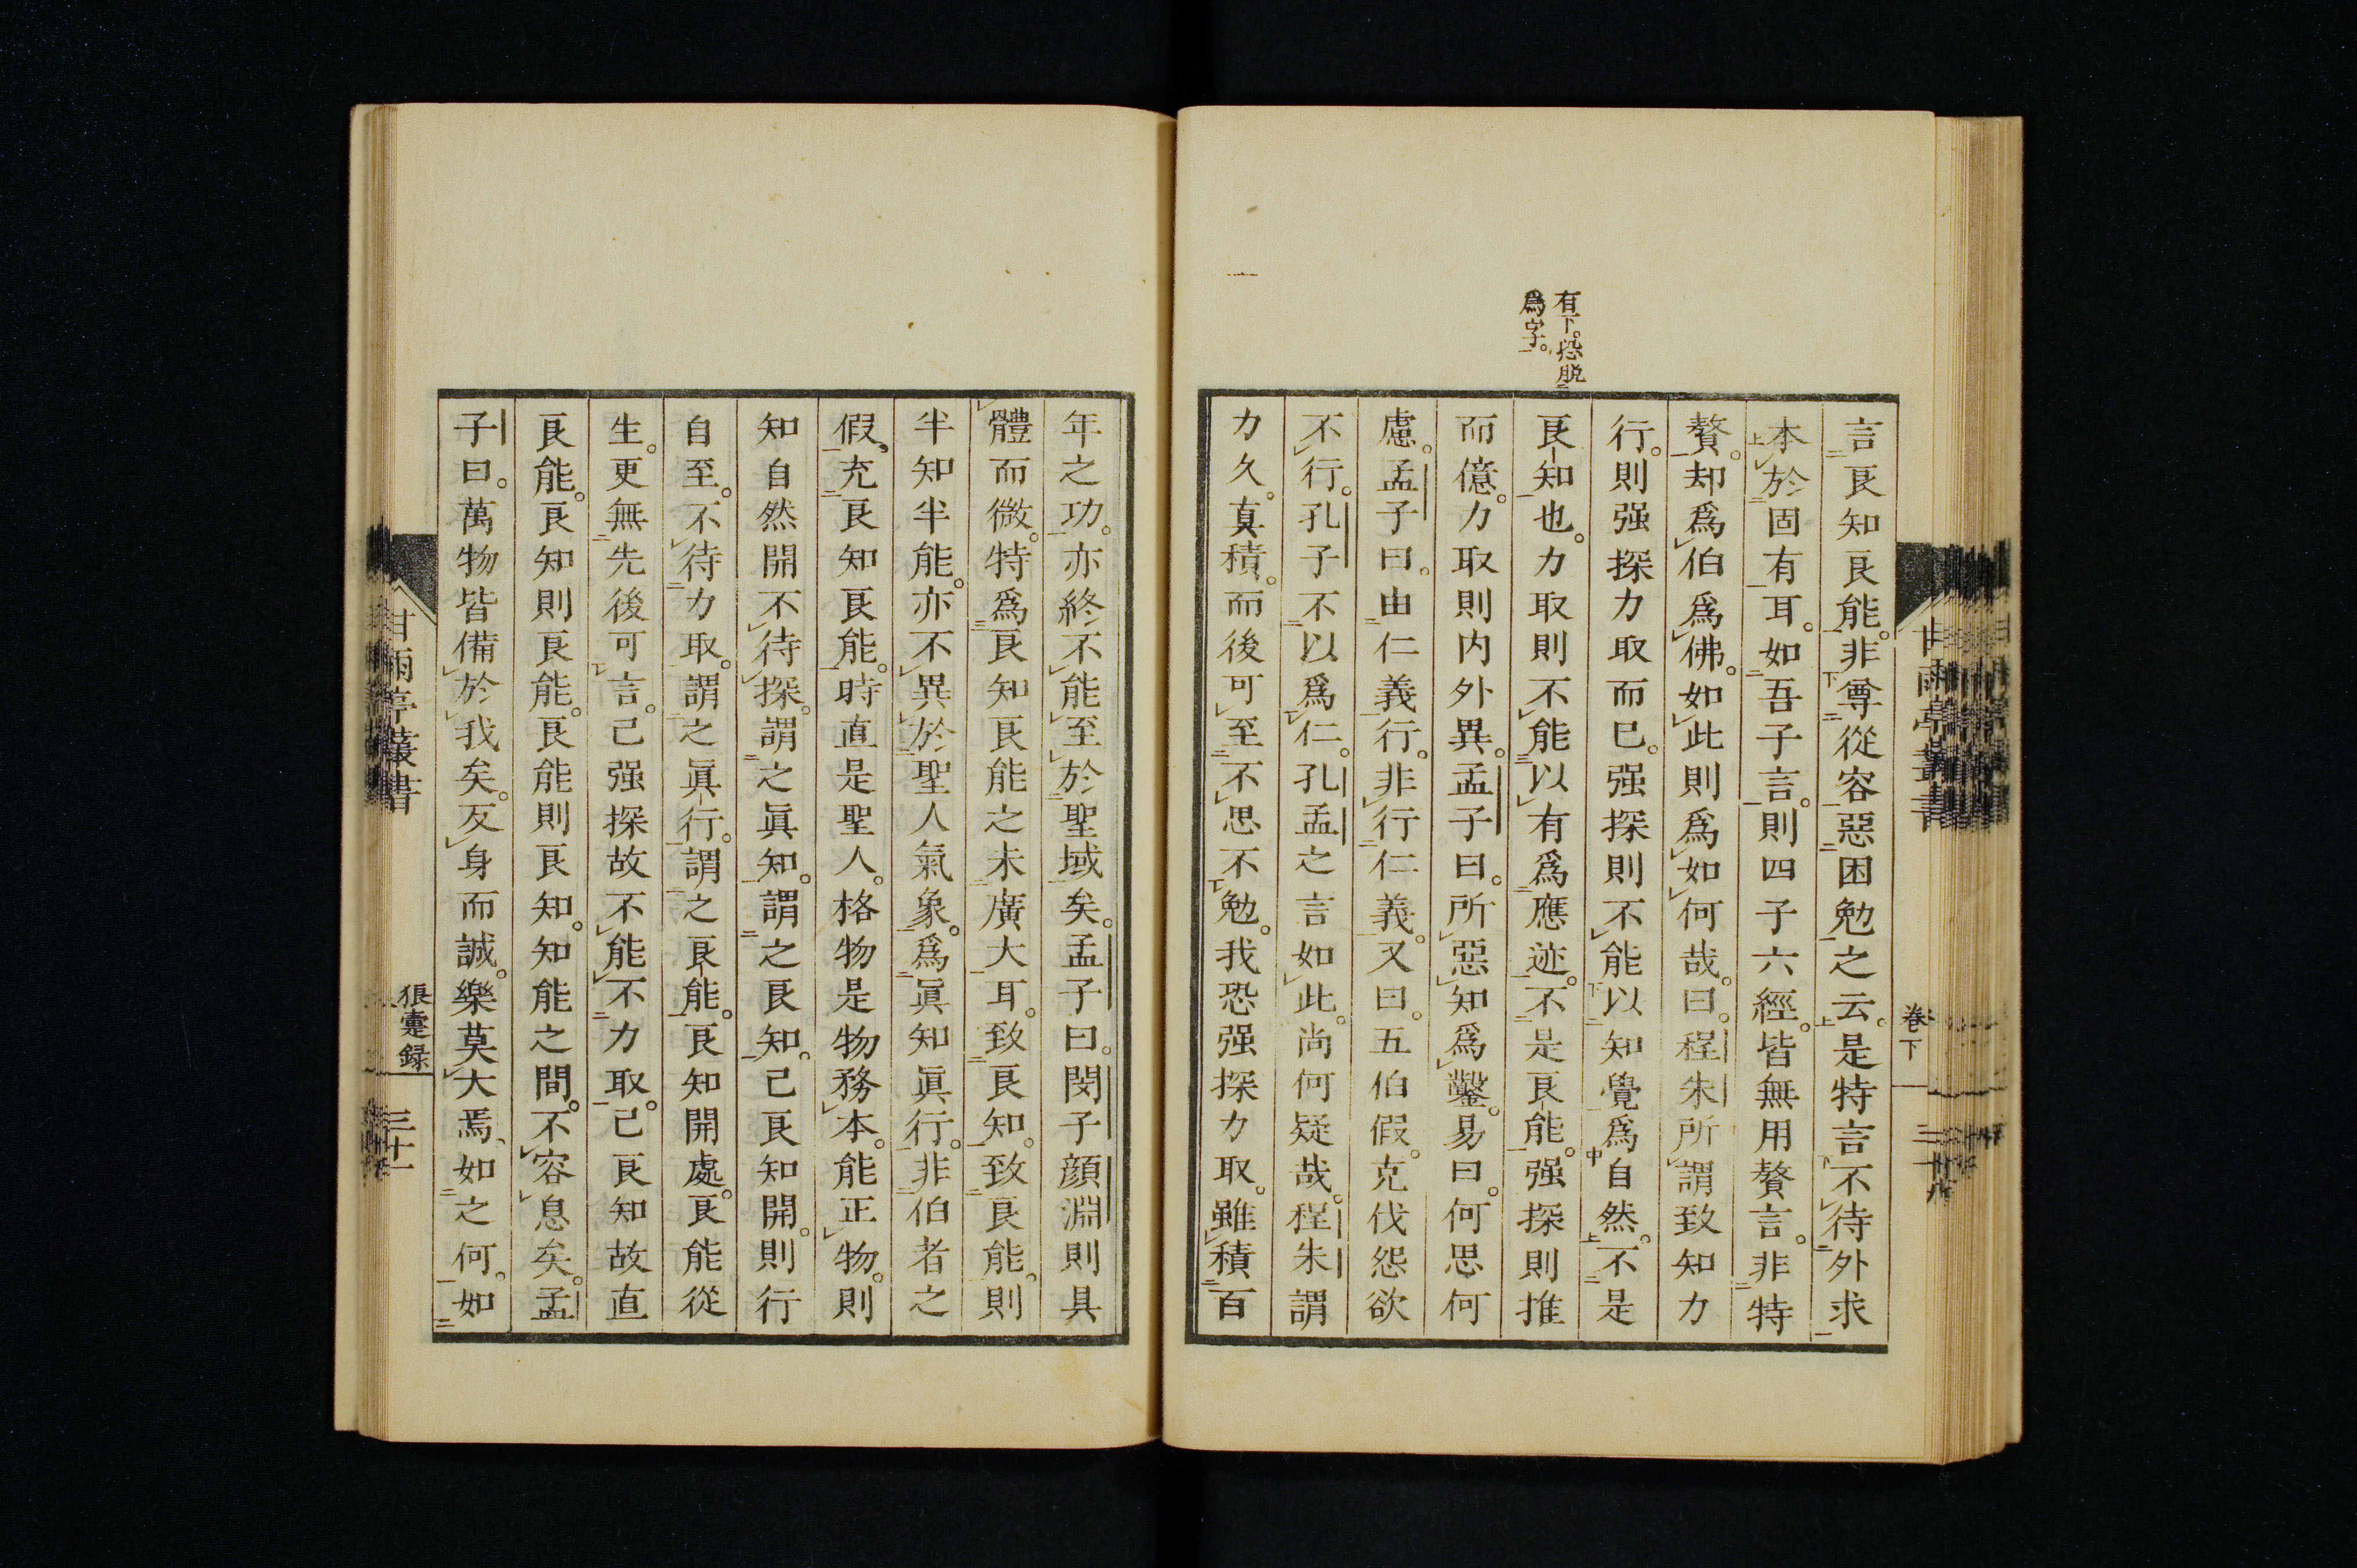 有下。恐脱
爲字。
言良知良能。非尊從容惡困勉之云。是特言不待外求
本於固有耳。如吾子言。則四子六經。皆無用贅言。非特
贅。却爲伯爲佛。如此則爲如何哉。曰。程朱所謂致知力
行。則强探力取而已。强探則不能以知覺爲自然。不是
良知也。力取則不能以有爲應迹。不是良能。强探則推
而億。力取則内外異。孟子曰。所惡知爲鑿。易曰。何思何
慮。孟子曰。由仁義行。非行仁義。又曰。五伯假。克伐怨欲
不行。孔子不以爲仁。孔孟之言如此。尚何疑哉。程朱謂
力久。真積。而後可至不思不勉。我恐强探力取。雖積百
甘雨亭叢書
卷下
年之功。亦終不能至於聖域矣。孟子曰。閔子顏淵則具
體而微。特爲良知良能之未廣大耳。致良知。致良能。則
半知半能。亦不異於聖人氣象。爲眞知眞行。非伯者之
假。充良知良能。時直是聖人。格物是物務本。能正物。則
知自然開不待探。謂之眞知。謂之良知。己良知開。則行
自至。不待力取。謂之眞行。謂之良能。良知開處。良能從
生。更無先後可言。己强探故不能不力取。己良知故直
良能。良知則良能。良能則良知。知能之間。不容息矣。孟
子曰。萬物皆備於我矣。反身而誠。樂莫大焉、如之何。如
甘雨亭叢書
狼疐録
三十一